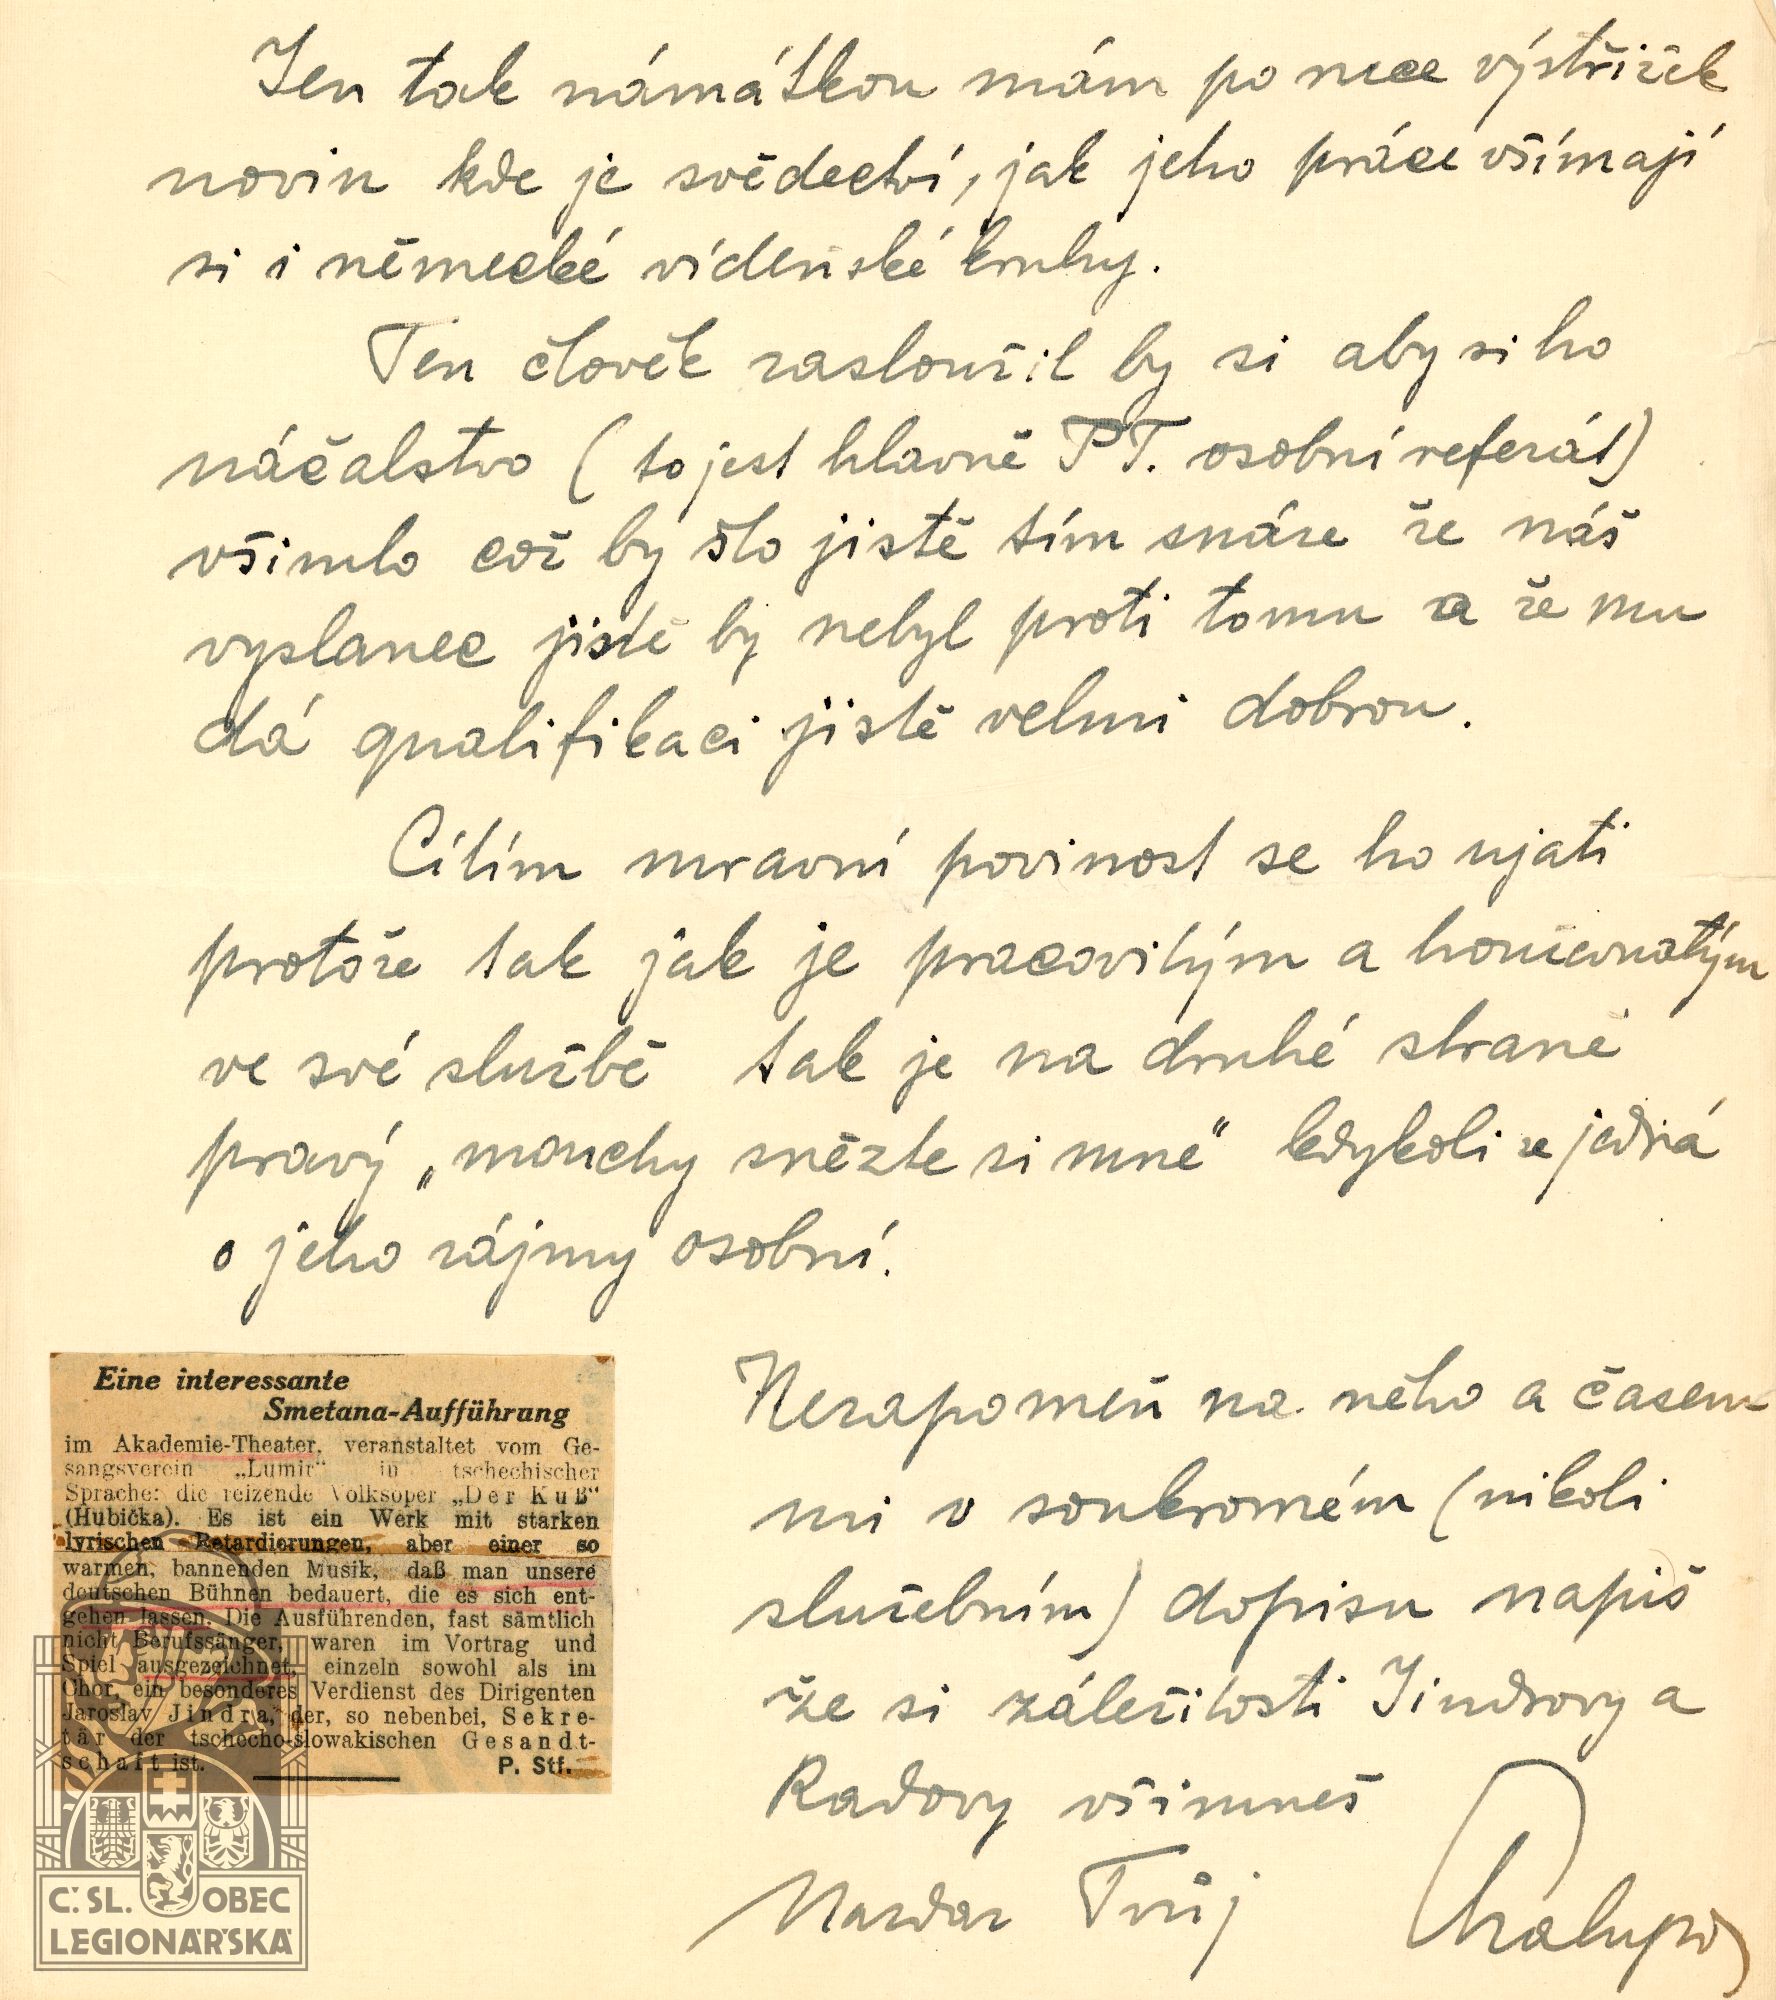 Jen tak námátkou mám po ruce výstřižek
novin kde je svědectví, jak jeho práce všímají
si i německé vídeňské kruhy.
Ten člověk zasloužil by si aby si ho
náčalstvo (to jest hlavně P.T. osobní referát)
všimlo což by šlo jistě tím snáze že náš
vyslanec jistě by nebyl proti tomu a že mu
dá qualifikaci jistě velmi dobrou.
Cítím mravní povinost se ho ujati
protože tak jak je pracovitým a houževnatým
ve své službě tak je na druhé straně
pravý „mouchy snězte si mně" kdykoli se jedná
o jeho zájmy osobní.
Eine interessante
Smetana-Aufführung
im Akademie-Theater, veranstaltet vom Ge-
sangsverein „Lumir" in tschechischer
Sprache: die reizende Volksoper „Der Kuß"
(Hubička). Es ist ein Werk mit starken
lyrischen Retardierungen, aber einer so
warmen, bannenden Musik, daß man unsere
deutschen Bühnen bedauert, die es sich ent-
gehen lassen. Die Ausführenden, fast sämtlich
nicht Berufssänger, waren im Vortrag und
Spiel ausgezeichnet, einzeln sowohl als im
Chor, ein besonderes Verdienst des Dirigenten
Jaroslav Jindra, der, so nebenbei, Sekre-
tär der tschecho-slowakischen Gesandt-
schaft ist. P. Stf.
Nezapomeň na něho a časem
mi v soukromém (nikoli
služebním) dopisu napiš
že si záležitosti Jindrovy a
Radovy všimneš
Nazdar Tvůj
Chalupa
Č. SL. OBEC
LEGIONÁŘSKÁ